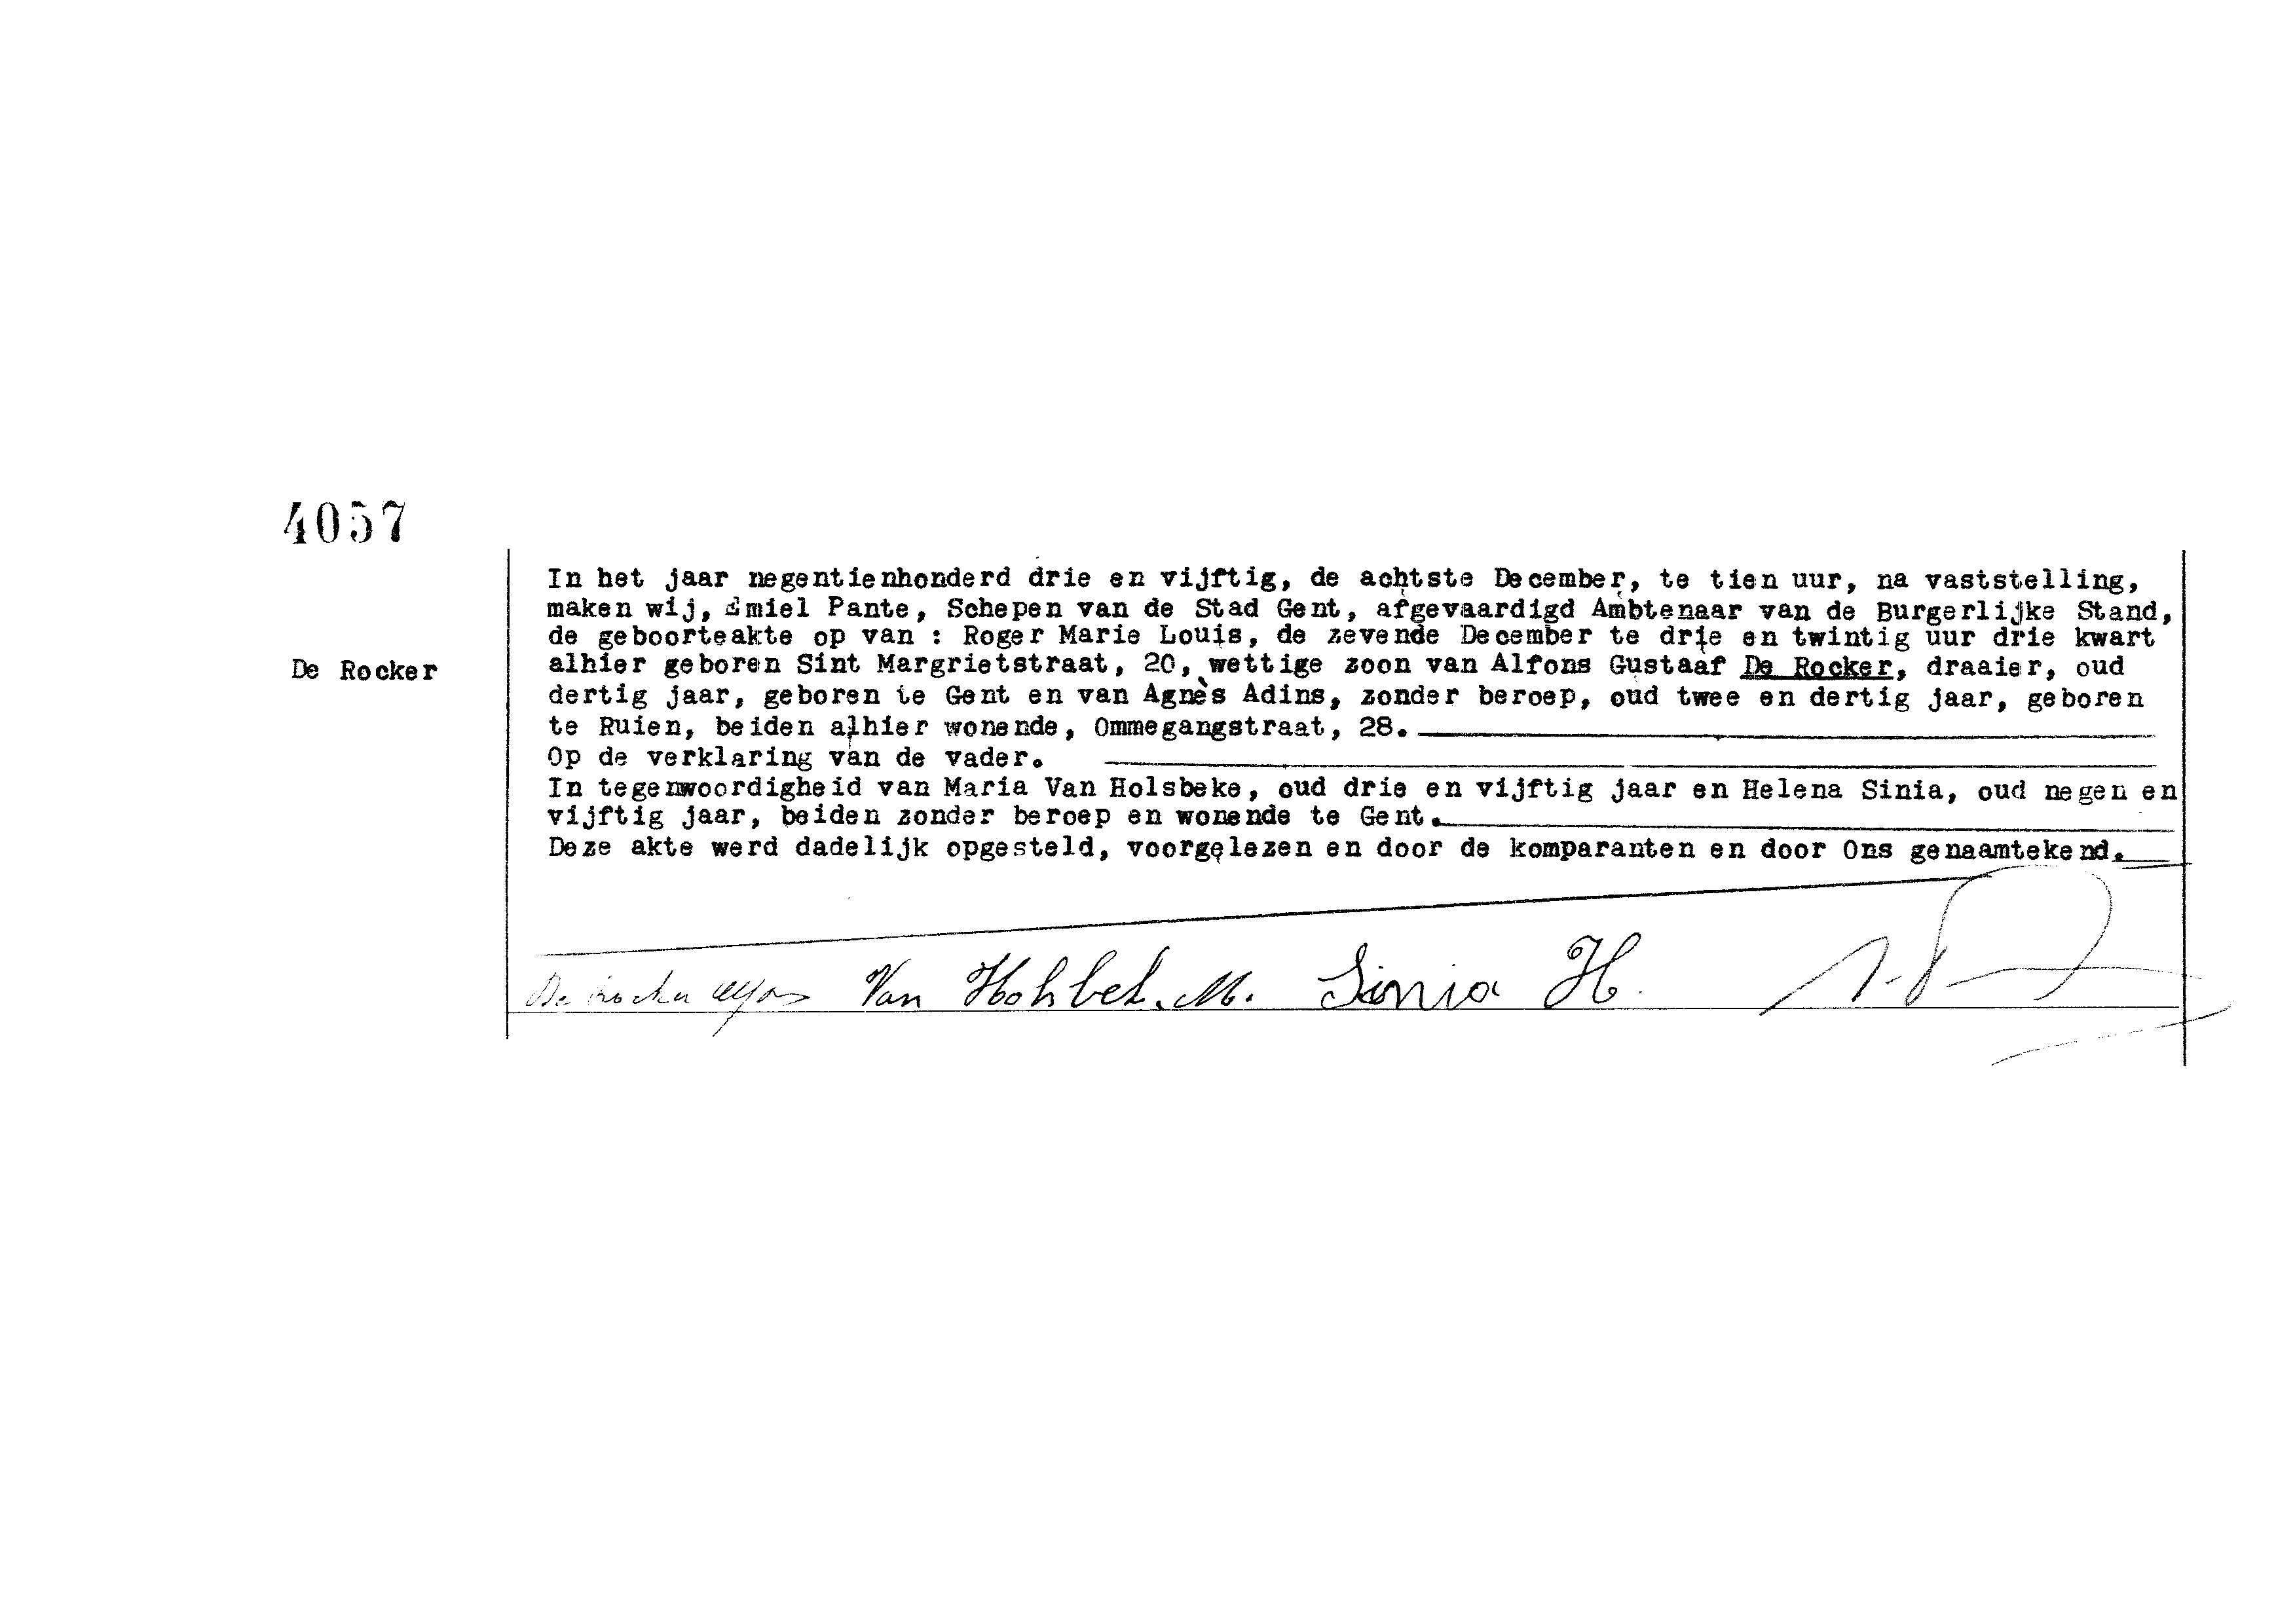 4057
In het jaar negentienhonderd drie en vijftig, de achtste December, te tien uur, na vaststelling,
maken wij, Emiel Pante, Schepen van de Stad Gent, afgevaardigd Ambtenaar van de Burgerlijke Stand,
de geboorteakte op van : Roger Marie Louis, de zevende December te drie en twintig uur drie kwart
De Rocker
alhier geboren Sint Margrietstraat, 20, wettige zoon van Alfons Gustaaf De Rocker, draaier, oud
dertig jaar, geboren te Gent en van Agnès Adins, zonder beroep, oud twee en dertig jaar, geboren
te Ruien, beiden alhier wonende, Ommegangstraat, 28.
Op de verklaring van de vader.
In tegenwoordigheid van Maria Van Holsbeke, oud drie en vijftig jaar en Helena Sinia, oud negen en
vijftig jaar, beiden zonder beroep en wonende te Gent.
Deze akte werd dadelijk opgesteld, voorgelezen en door de komparanten en door Ons genaamtekend.
De Rocker Alfons Van Holsbek. M. Sinia H.